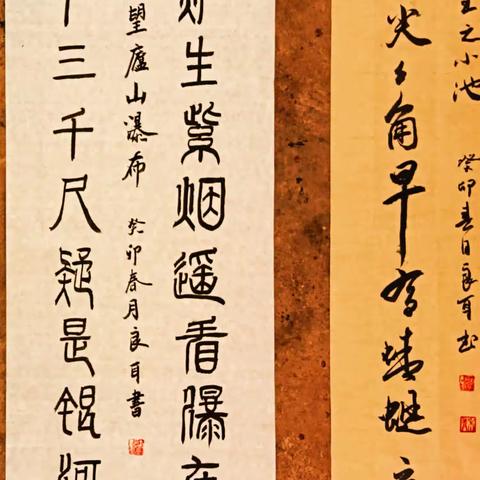 里之小池 癸卯春日良耳书
尖尖角早有蜻蜓
生紫烟遥看瀑
望廬山瀑布 癸卯春月良耳書
三千尺疑是银河